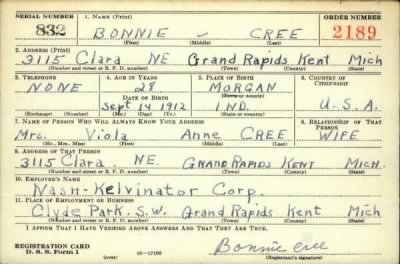 SERIAL NUMBER 1. NAME (Print) ORDER NUMBER
832 BONNIE - CREE 2189
(First) (Middle) (Last)
2. ADDRESS (Print)
3115 Clara NE Grand Rapids Kent Mich
(Number and street or R. F. D. number) (Town) (County) (State)
3. TELEPHONE 4. AGE IN YEARS 5. PLACE OF BIRTH 6. COUNTRY OF CITIZENSHIP
NONE 28 MORGAN
DATE OF BIRTH (Town or county)
Sept 14 1912 IND. U.S.A.
(Exchange) (Number) (Mo.) (Day) (Yr.) (State or country)
7. NAME OF PERSON WHO WILL ALWAYS KNOW YOUR ADDRESS 8. RELATIONSHIP OF THAT PERSON
Mrs. Viola Anne CREE WIFE
(Mr., Mrs., Miss) (First) (Middle) (Last)
9. ADDRESS OF THAT PERSON
3115 Clara. NE. GRAND RAPIDS KENT MICH.
(Number and street or R. F. D. number) (Town) (County) (State)
10. EMPLOYER'S NAME
Nash-Kelvinator Corp.
11. PLACE OF EMPLOYMENT OR BUSINESS
Clyde Park. S.W. Grand Rapids Kent Mich
(Number and street or R. F. D. number) (Town) (County) (State)
I AFFIRM THAT I HAVE VERIFIED ABOVE ANSWERS AND THAT THEY ARE TRUE.
Bonnie Cree
REGISTRATION CARD
D. S. S. Form 1 (over) 16-17105 (Registrant's signature)